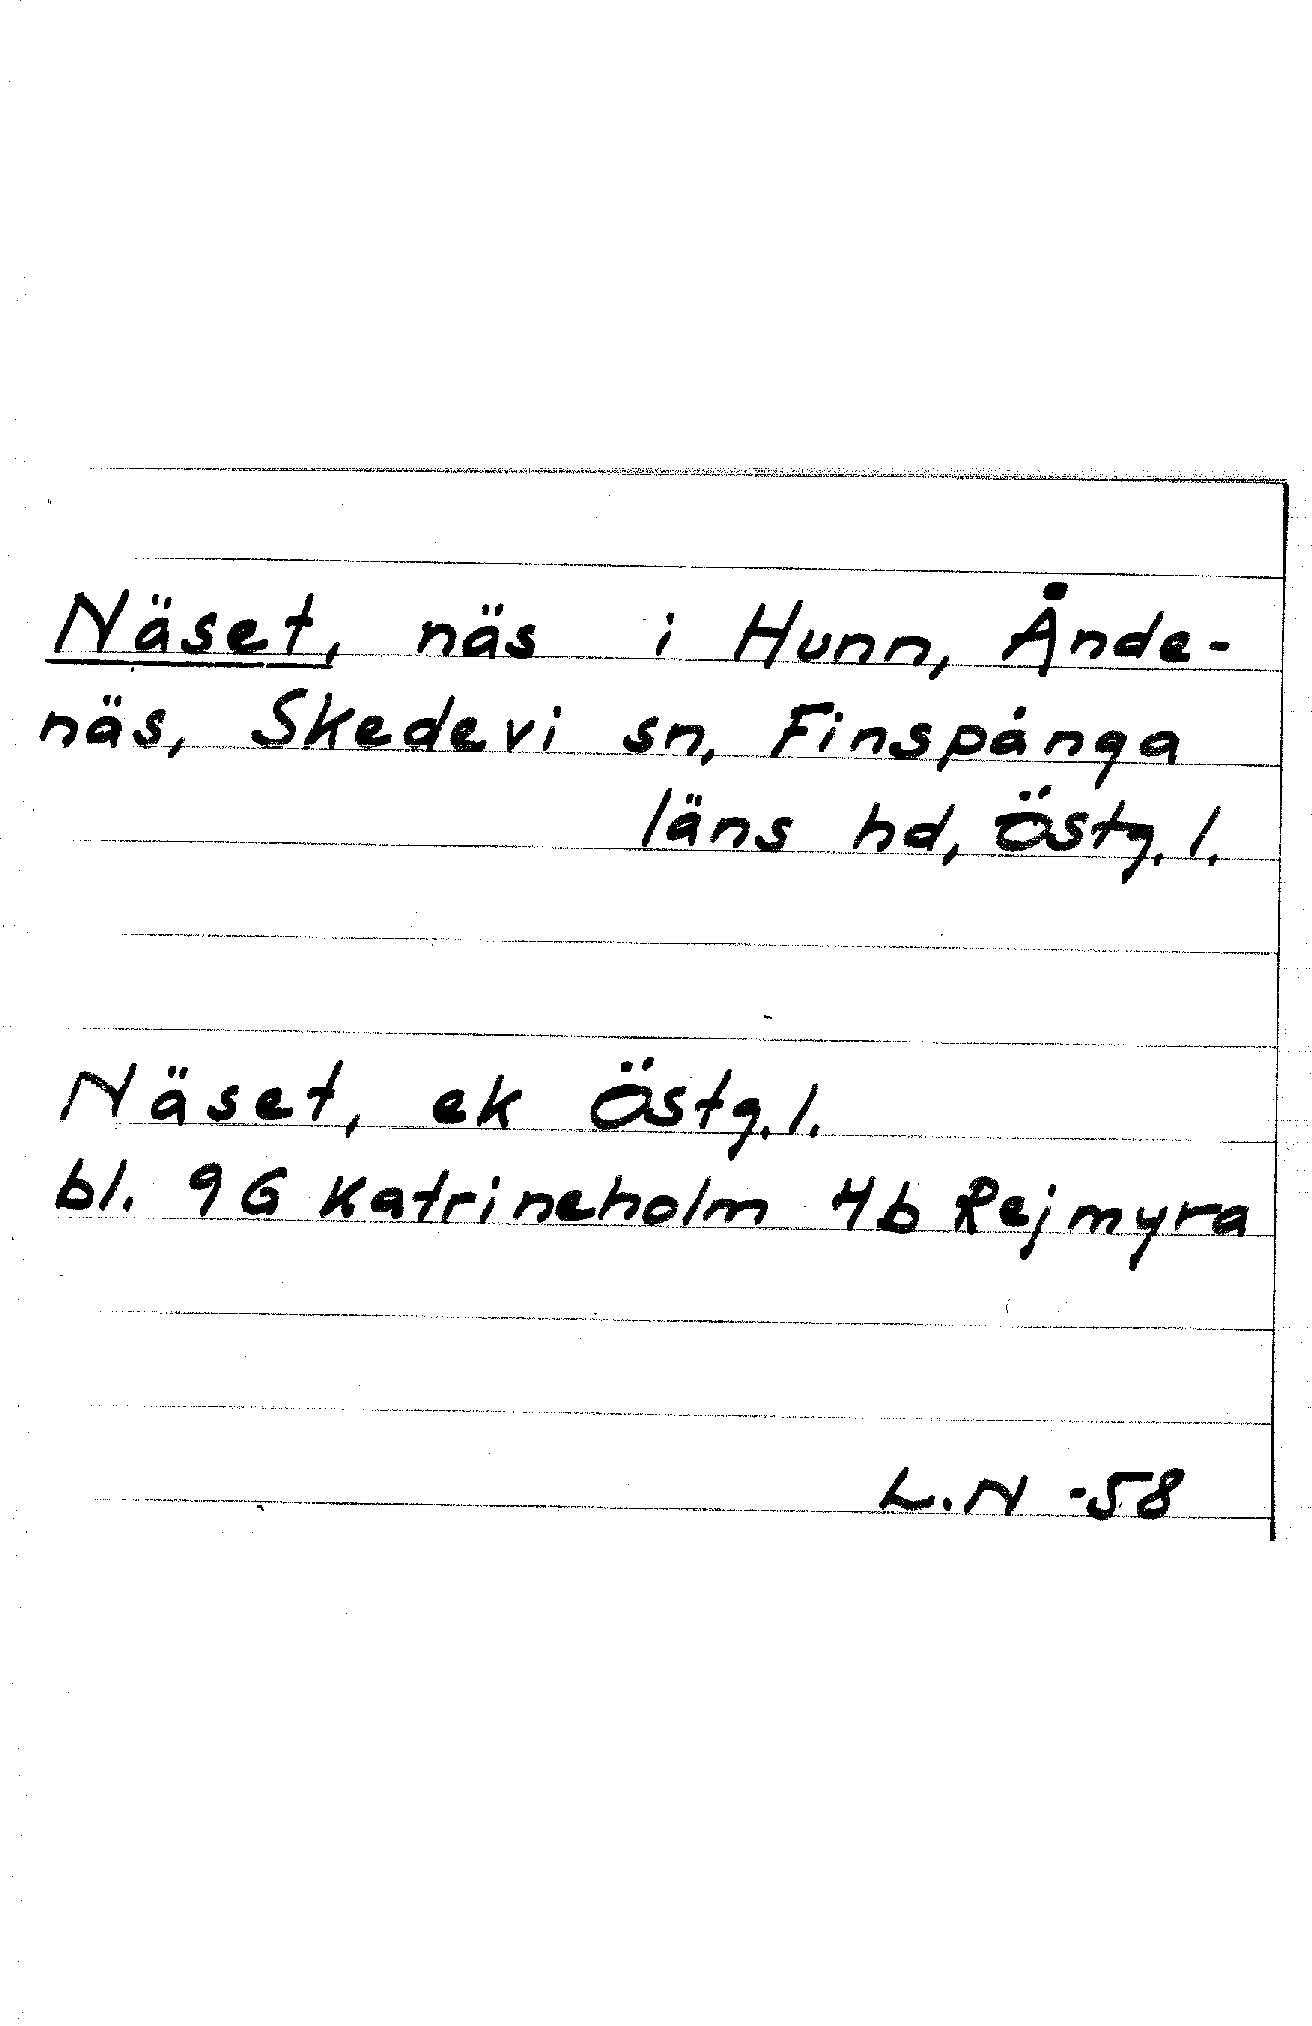 Näset, näs i Hunn, Ånde-
näs, Skedevi sn, Finspånga
läns hd, Östg. l.
Näset, ek Östg. l.
bl. 9G Katrineholm 4b Rejmyra
L.N -58